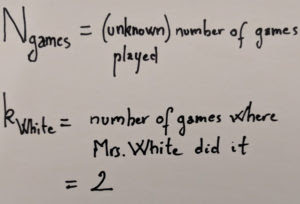 N_games = (unknown) number of games
played
k_White = number of games where
Mrs. White did it
= 2